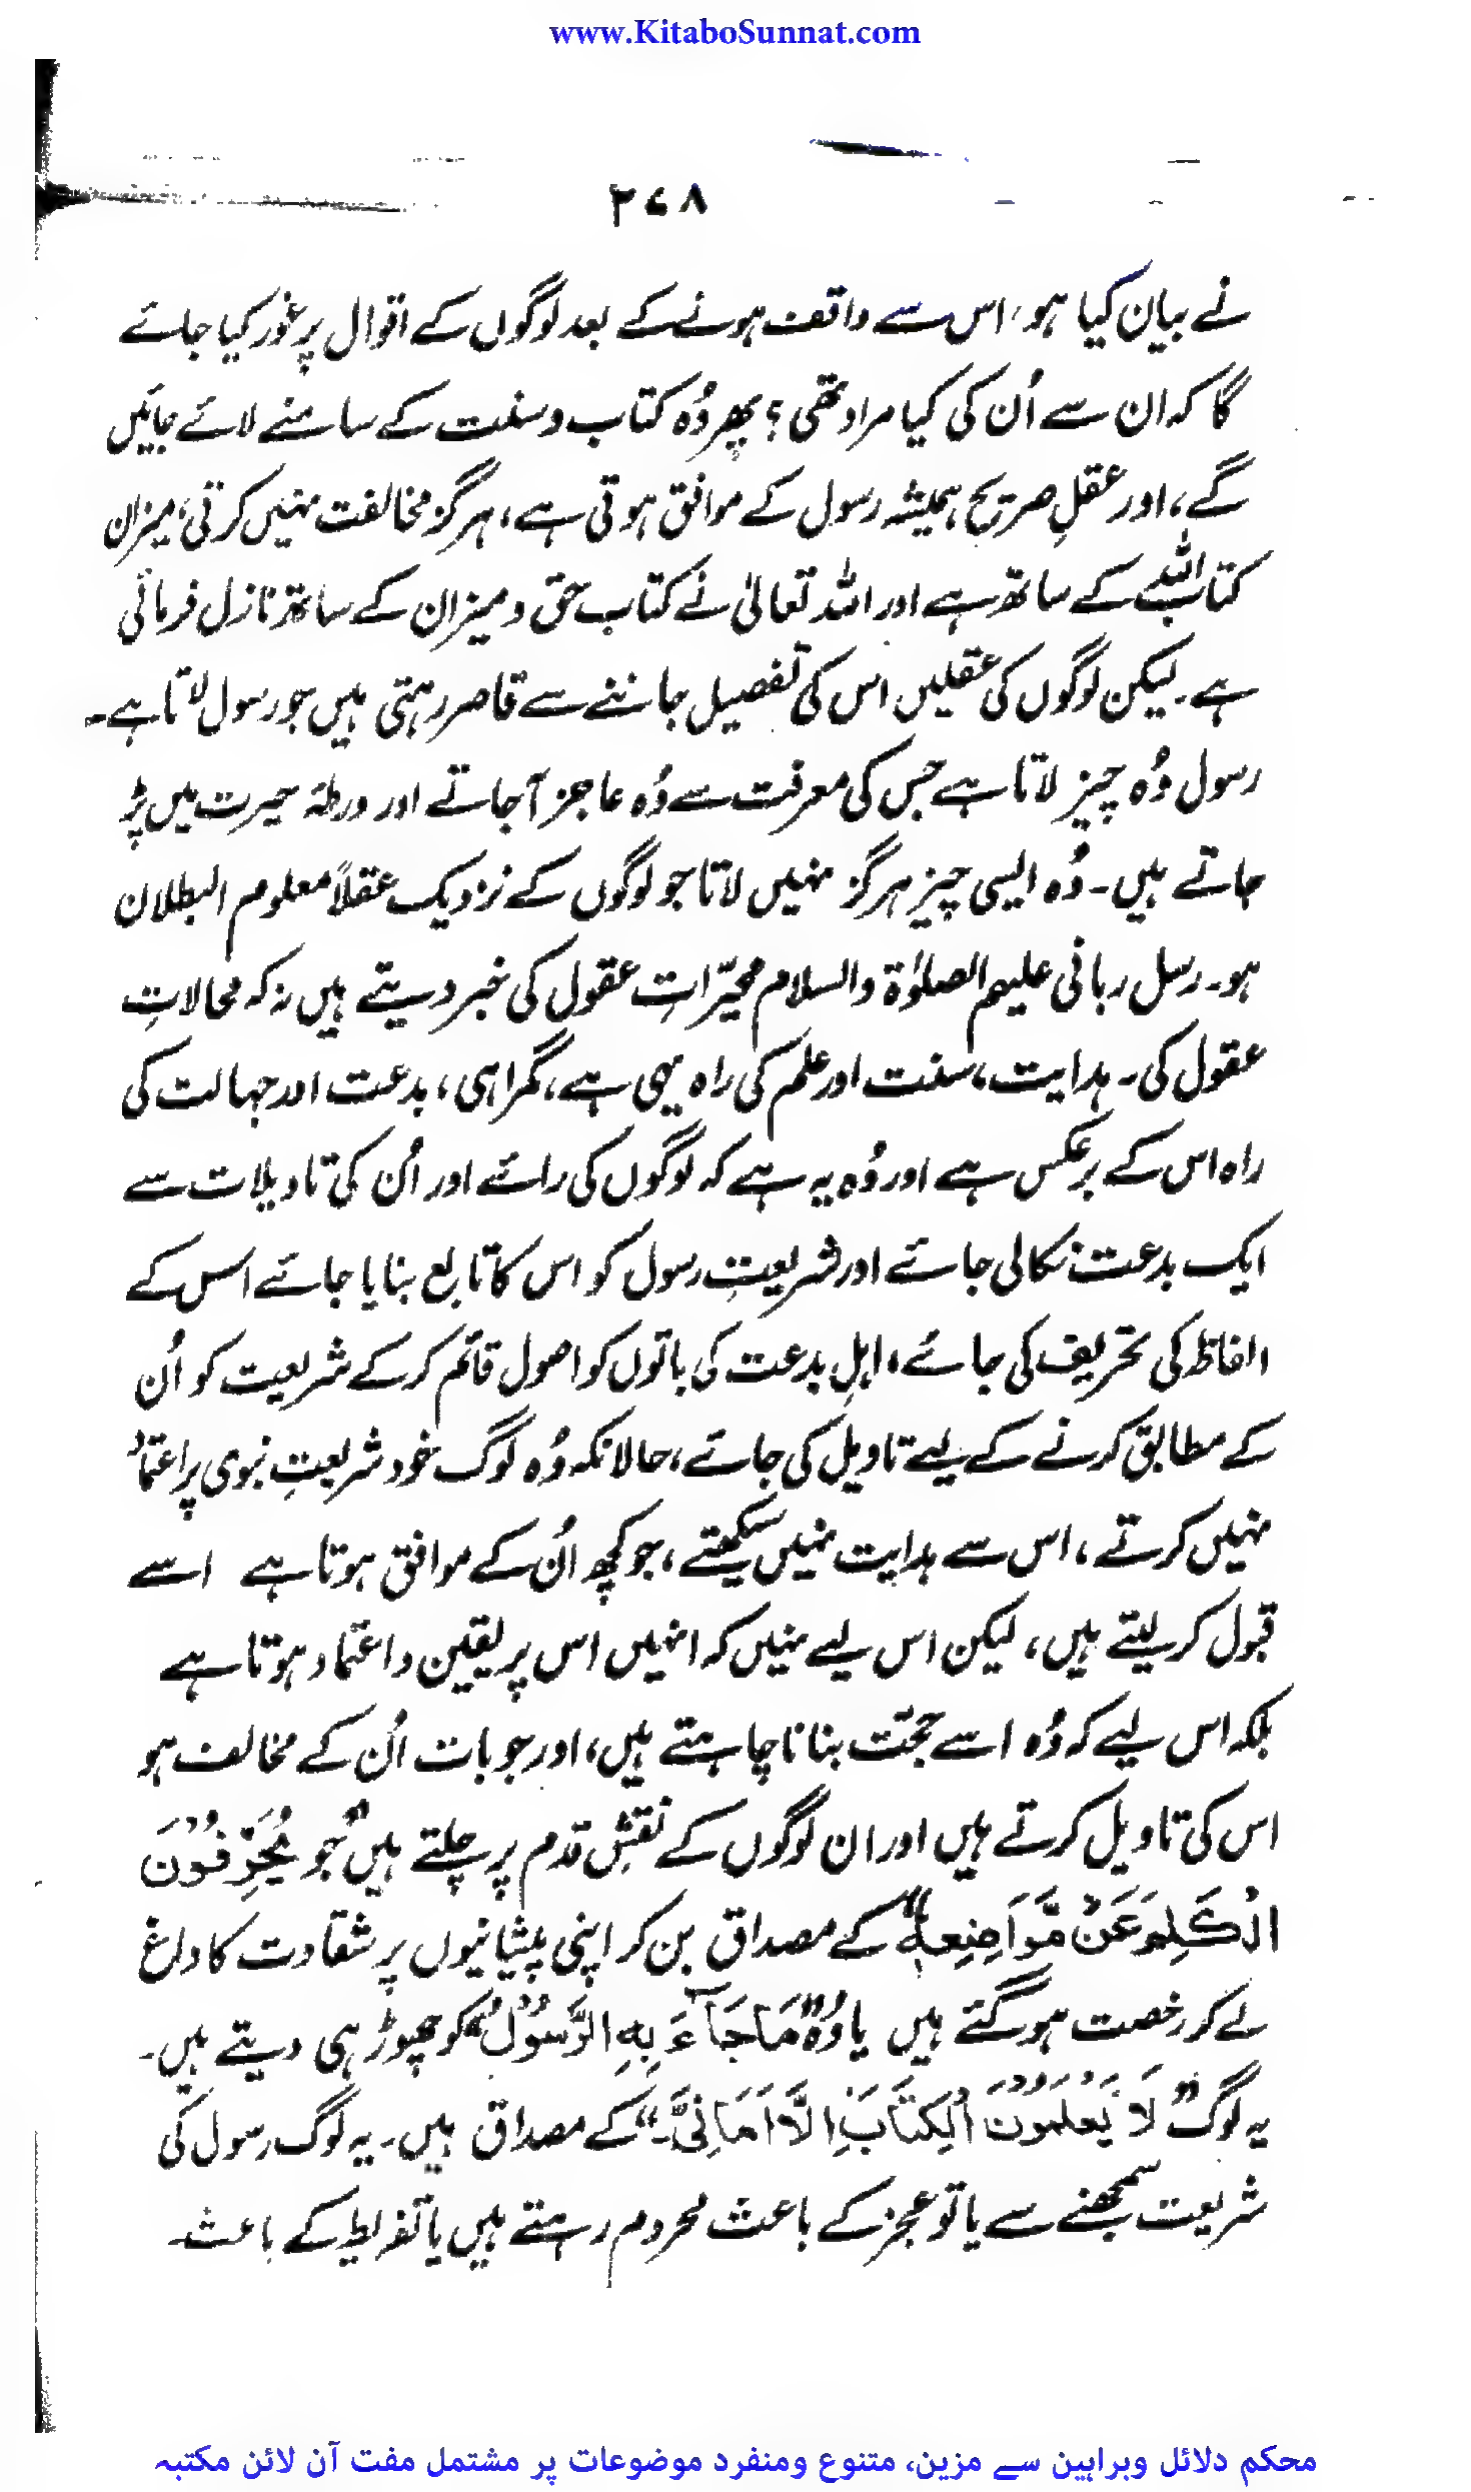 www.KitaboSunnat.com
۲۷۸
نے بیان کیا ہو، اس سے واقف ہونے کے بعد لوگوں کے اقوال پر غور کیا جائے
گا کہ ان سے اُن کی کیا مراد تھی؟ پھر وُہ کتاب و سنت کے سامنے لائے جائیں
گے، اور عقلِ صریح ہمیشہ رسول کے موافق ہوتی ہے، ہرگز مخالفت نہیں کرتی، میزان
کتاب اللہ کے ساتھ ہے اور اللہ تعالیٰ نے کتاب حق و میزان کے ساتھ نازل فرمائی
ہے۔ لیکن لوگوں کی عقلیں اس کی تفصیل جاننے سے قاصر رہتی ہیں جو رسول لاتا ہے۔
رسول وُہ چیز لاتا ہے جس کی معرفت سے وُہ عاجز آجاتے اور ورطۂ حیرت میں پڑ
جاتے ہیں۔ وُہ ایسی چیز ہرگز نہیں لاتا جو لوگوں کے نزدیک عقلاً معلوم البطلان
ہو۔ رسل ربانی علیہم الصلوٰۃ والسلام محیّراتِ عقول کی خبر دیتے ہیں نہ کہ محالاتِ
عقول کی۔ ہدایت، سنت اور علم کی راہ یہی ہے، گمراہی، بدعت اور جہالت کی
راہ اس کے برعکس ہے اور وُہ یہ ہے کہ لوگوں کی رائے اور اُن کی تاویلات سے
ایک بدعت نکالی جائے اور شریعتِ رسول کو اس کا تابع بنایا جائے اس کے
الفاظ کی تحریف کی جائے، اہلِ بدعت کی باتوں کو اصول قائم کرکے شریعت کو اُن
کے مطابق کرنے کے لیے تاویل کی جائے، حالانکہ وُہ لوگ خود شریعتِ نبوی پر اعتماد
نہیں کرتے، اس سے ہدایت نہیں سیکھتے، جو کچھ اُن کے موافق ہوتا ہے اسے
قبول کر لیتے ہیں، لیکن اس لیے نہیں کہ انہیں اس پر یقین و اعتماد ہوتا ہے
بلکہ اس لیے کہ وُہ اسے حجّت بنانا چاہتے ہیں، اور جو بات اُن کے مخالف ہو
اس کی تاویل کرتے ہیں اور ان لوگوں کے نقشِ قدم پر چلتے ہیں جو ”یُحَرِّفُوْنَ
الْکَلِمَ عَنْ مَّوَاضِعِہٖ“ کے مصداق بن کر اپنی پیشانیوں پر شقاوت کا داغ
لے کر رخصت ہوگئے ہیں یا وُہ ”مَاجَآءَ بِہِ الرَّسُوْلُ“ کو چھوڑ ہی دیتے ہیں۔
یہ لوگ ”لَا یَعْلَمُوْنَ الْکِتَابَ اِلَّا اَمَانِیَّ۔“ کے مصداق ہیں۔ یہ لوگ رسول کی
شریعت سمجھنے سے یا تو عجز کے باعث محروم رہتے ہیں یا تفریط کے باعث۔
محکم دلائل وبراہین سے مزین، متنوع ومنفرد موضوعات پر مشتمل مفت آن لائن مکتبہ